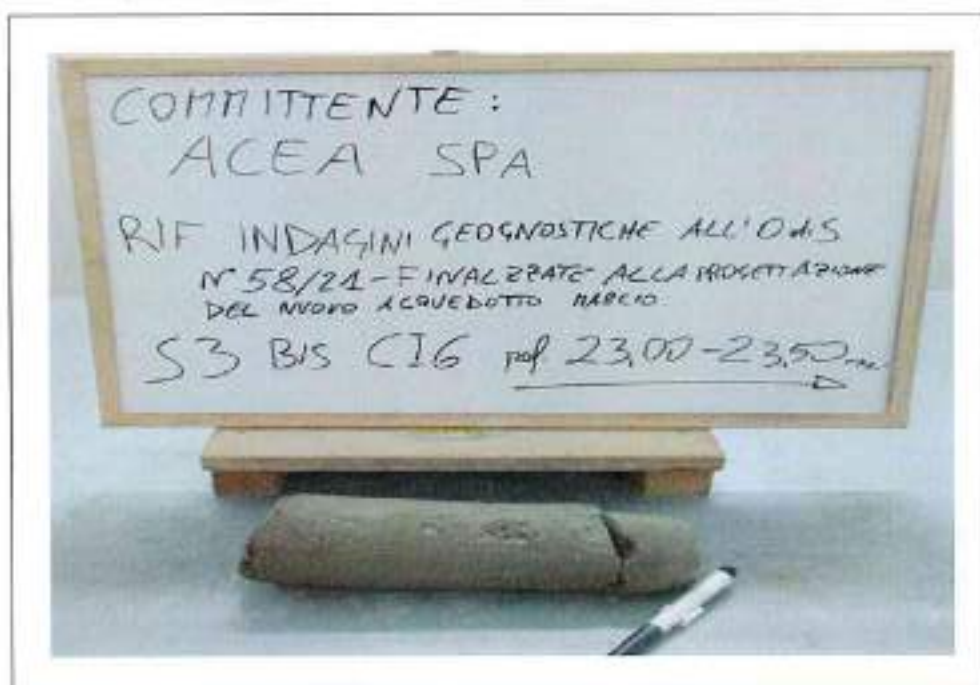 COMMITTENTE :
ACEA SPA
RIF INDAGINI GEOGNOSTICHE ALL'O di S
N° 58/21 - FINALZZATE ALLA PROGETTAZIONE
DEL NUOVO ACQUEDOTTO MARCIO
S3 BIS CI6 prof 23,00-23,50 m.